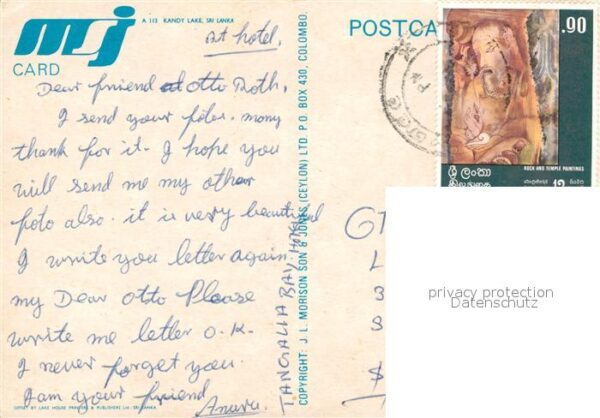 mj
CARD
A 113 KANDY LAKE, SRI LANKA
At hotel,
Dear friend Otto Roth.
I send your foto. mony
thank for it. I hope you
will send me my other
foto also. it is very beautiful
I write you letter again
my Dear Otto Please
write me letter O.K.
I never forget you.
I am your friend
OFFSET BY LAKE HOUSE PRINTERS & PUBLISHERS LTD - SRI LANKA
TANGALLA BAY HOTEL
COPYRIGHT: J. L. MORISON SON & JONES (CEYLON) LTD. P.O. BOX 430, COLOMBO.
POSTCA
.90
ROCK AND TEMPLE PAINTINGS
ශ්‍රී ලංකා
இலங்கை
privacy protection
Datenschutz